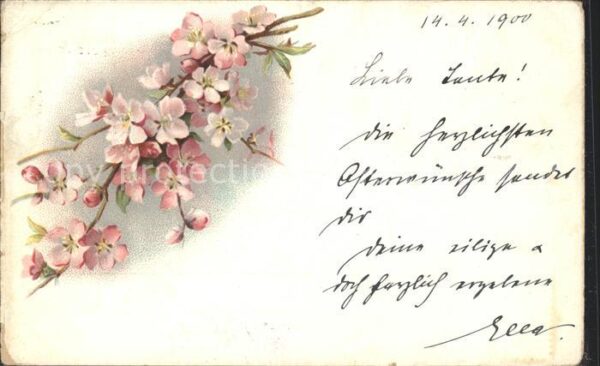 14.4.1900
Liebe Tante!
die herzlichsten
Osterwünsche sendet
dir
deine eilige &
doch herzlich ergebene
Ella.
copy protection